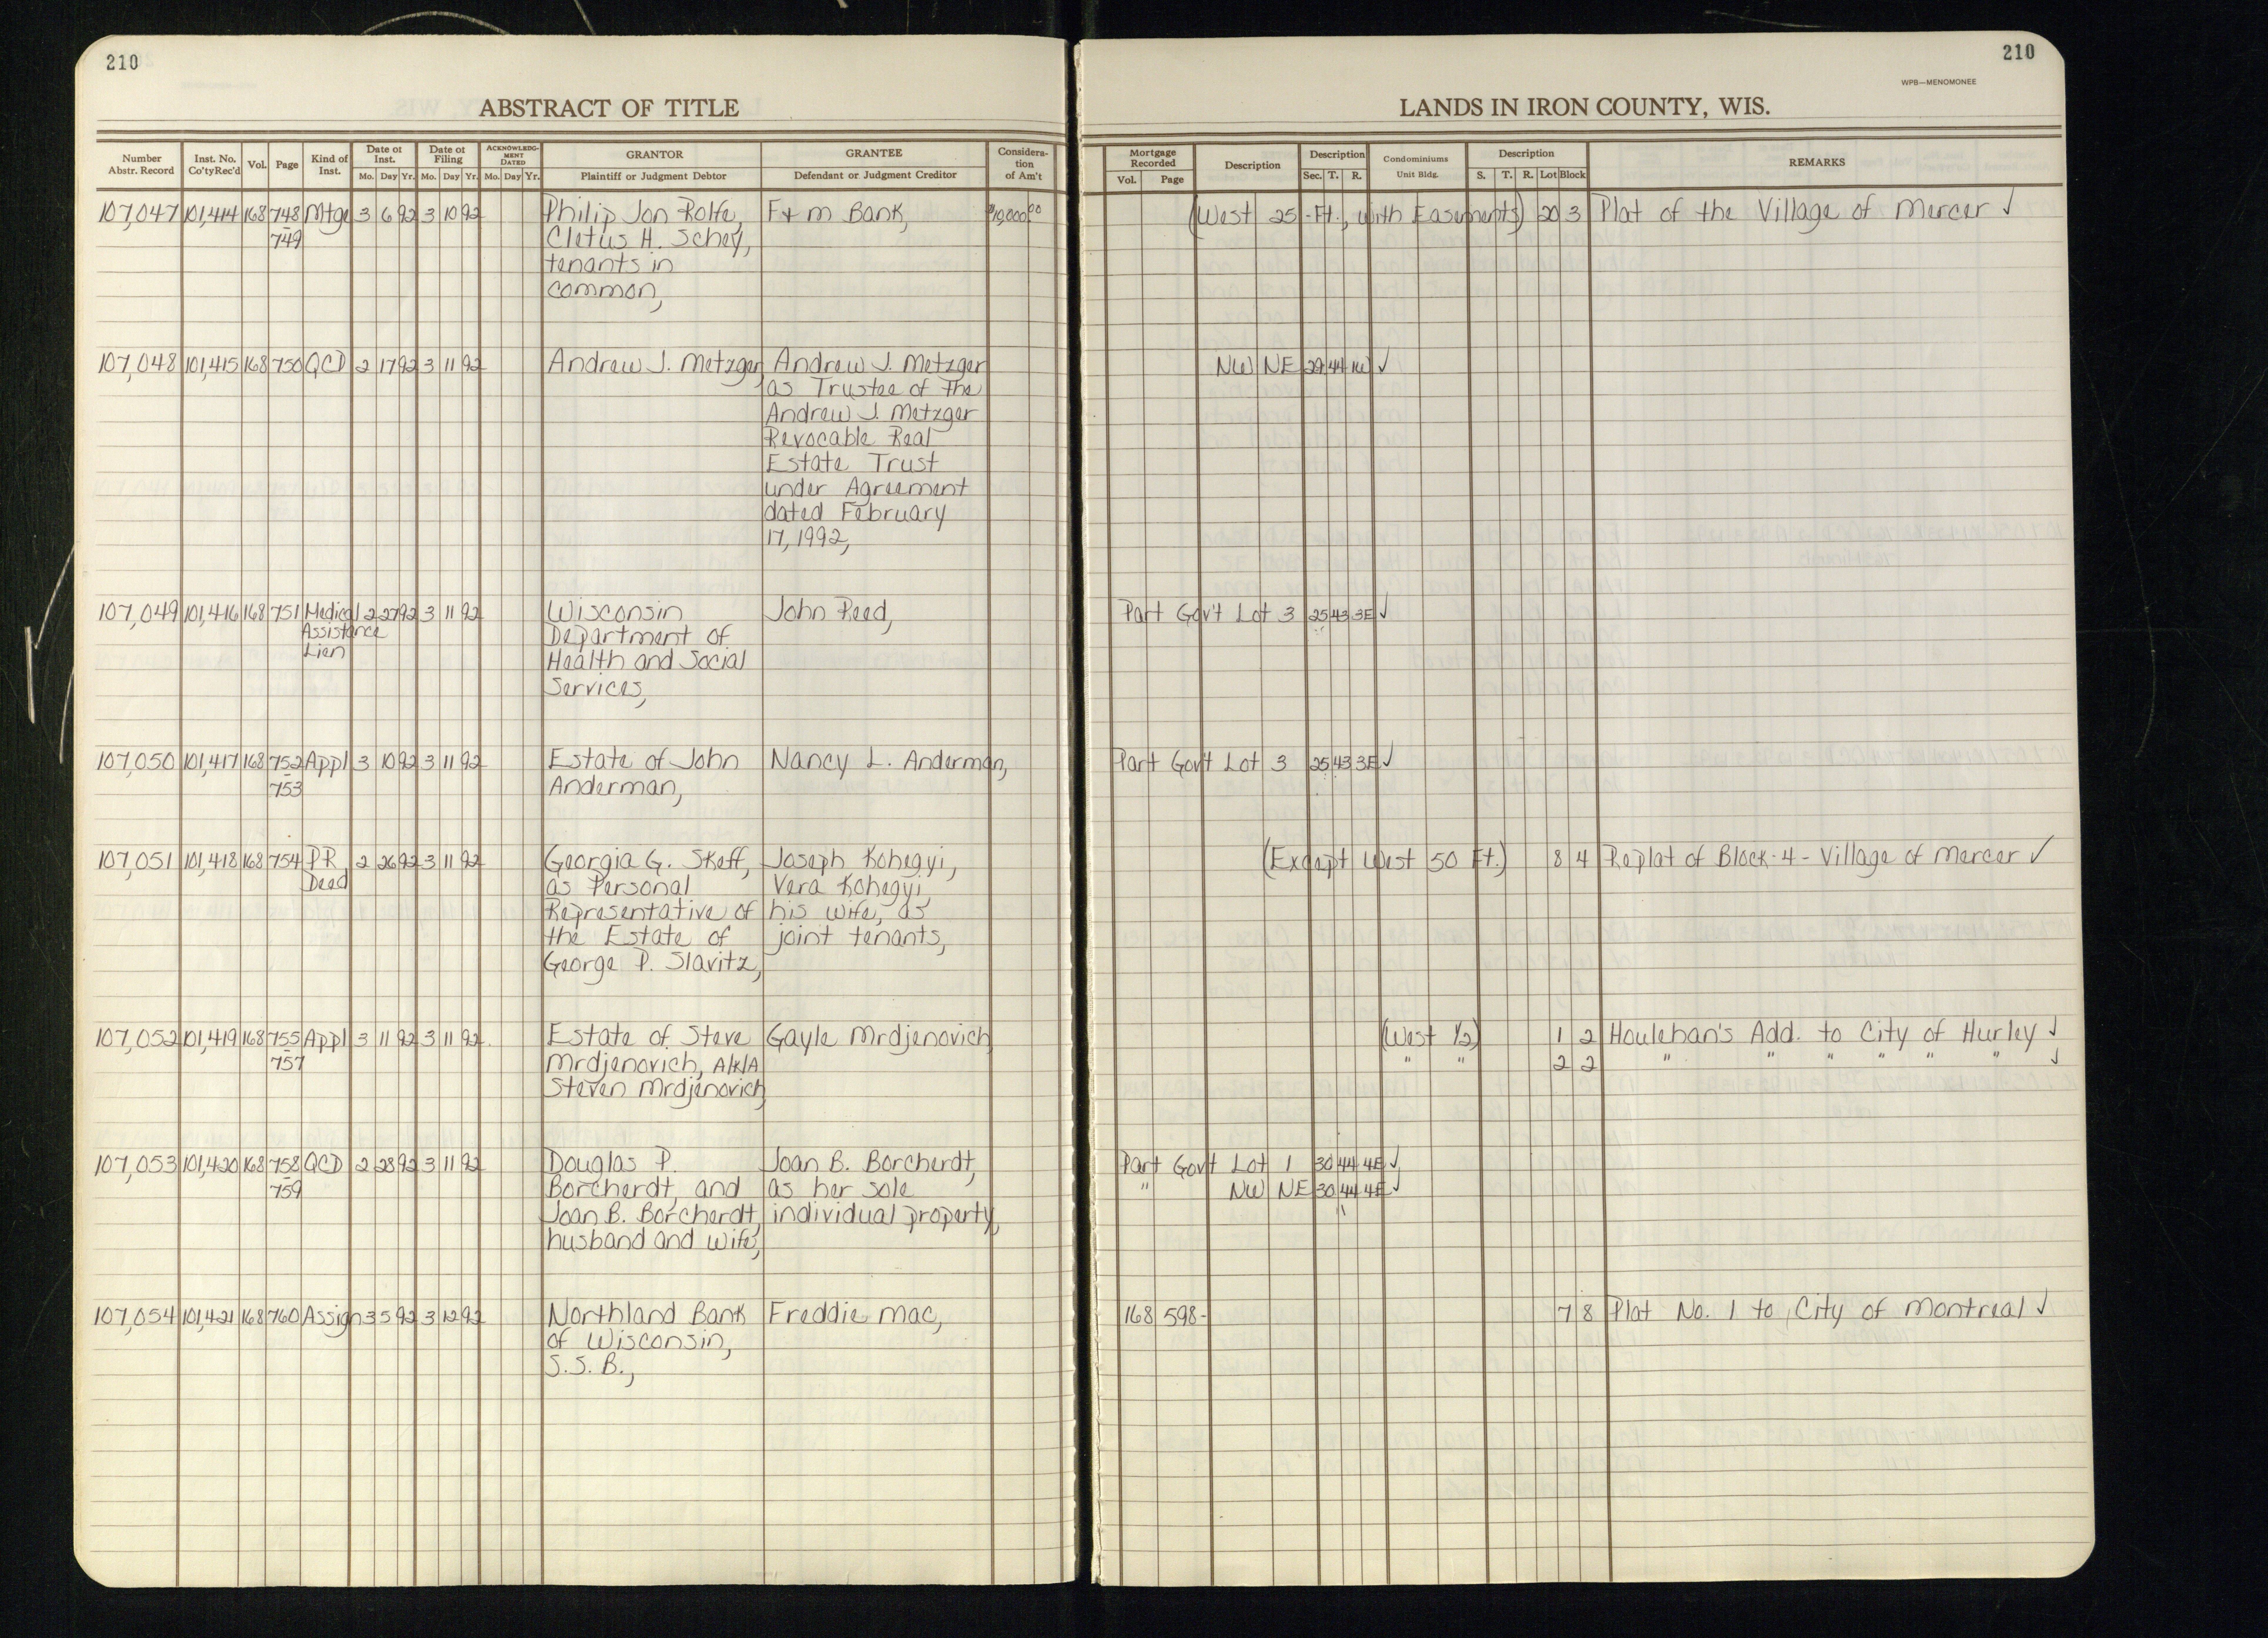 210
210
WPB—MENOMONEE
ABSTRACT OF TITLE
LANDS IN IRON COUNTY, WIS.
Number Abstr. Record Inst. No. Co'tyRec'd Vol. Page Kind of Inst. Date of Inst. Mo. Day Yr. Date of Filing Mo. Day Yr. ACKNOWLEDGMENT DATED Mo. Day Yr. GRANTOR Plaintiff or Judgment Debtor GRANTEE Defendant or Judgment Creditor Consideration of Am't
Mortgage Recorded Vol. Page Description Description Sec. T. R. Condominiums Unit Bldg. Description S. T. R. Lot Block REMARKS
107,047 101,414 168 748 Mtge 3 6 92 3 10 92 Philip Jon Rolfe, F & M Bank, $19,000.00 (West 25 Ft., with Easements) 20 3 Plat of the Village of Mercer ✓
- 749 Cletus H. Schey,
tenants in
common,
107,048 101,415 168 750 QCD 2 17 92 3 11 92 Andrew J. Metzger, Andrew J. Metzger NW NE 29 44 1W ✓
as Trustee of the
Andrew J. Metzger
Revocable Real
Estate Trust
under Agreement
dated February
17, 1992,
107,049 101,416 168 751 Medical 2 27 92 3 11 92 Wisconsin John Reed, Part Gov't Lot 3 25 43 3E ✓
Assistance Department of
Lien Health and Social
Services,
107,050 101,417 168 752 Appl 3 10 92 3 11 92 Estate of John Nancy L. Anderman, Part Gov't Lot 3 25 43 3E ✓
- 753 Anderman,
107,051 101,418 168 754 PR 2 26 92 3 11 92 Georgia G. Skeff, Joseph Kohegyi, (Except West 50 Ft.) 8 4 Replat of Block-4-Village of Mercer ✓
Deed as Personal Vera Kohegyi,
Representative of his wife, as
the Estate of joint tenants,
George P. Slavitz,
107,052 101,419 168 755 Appl 3 11 92 3 11 92 Estate of Steve Gayle Mrdjenovich, (West 1/2) 1 2 Houlehan's Add. to City of Hurley ✓
- 757 Mrdjenovich, A/K/A " " 2 2 " " " " " " ✓
Steven Mrdjenovich,
107,053 101,420 168 758 QCD 2 28 92 3 11 92 Douglas P. Joan B. Borcherdt, Part Gov't Lot 1 30 44 4E ✓
- 759 Borcherdt, and as her sole " NW NE 30 44 4E ✓
Joan B. Borcherdt, individual property,
husband and wife,
107,054 101,421 168 760 Assign 3 5 92 3 12 92 Northland Bank Freddie Mac, 168 598- 7 8 Plat No. 1 to City of Montreal ✓
of Wisconsin,
S.S.B.,